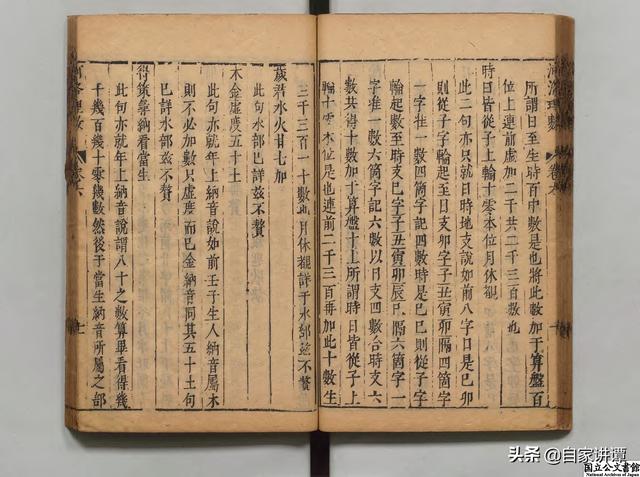 河洛理數 卷六
所謂日至生時百中數是也將此數加于算盤百
位上連前虛加二千共二千三百數也
時日皆從子上輪十零本位月休覩
此二句亦只就日時地支說如前八字日是己卯
則從子字輪起至日支卯字子丑寅卯隔四箇字
一字推一數四箇字記四數時是己巳則從子字
輪起數至時支巳字子丑寅卯辰巳隔六箇字一
字推一數六箇字記六數以日支四數合時支六
數共得十數加于算盤十上所謂時日皆從子上
輪十零本位是也連前二千三百再加此十數生
三千三百一十數也月休覩詳于水部茲不贅
歲君水火廿七加
此句水部已詳茲不贅
木金虛度五十土
此句亦就年上納音說如前壬子生人納音屬木
則不必加數只虛度而已金納音同其五十土句
已詳水部茲不贅
得策專納看當生
此句亦就年上納音說謂八十之數算畢看得幾
千幾百幾十零幾數然後于當生納音所屬之部
河洛理數 卷六
头条 @自家讲谭
国立公文書館
National Archives of Japan